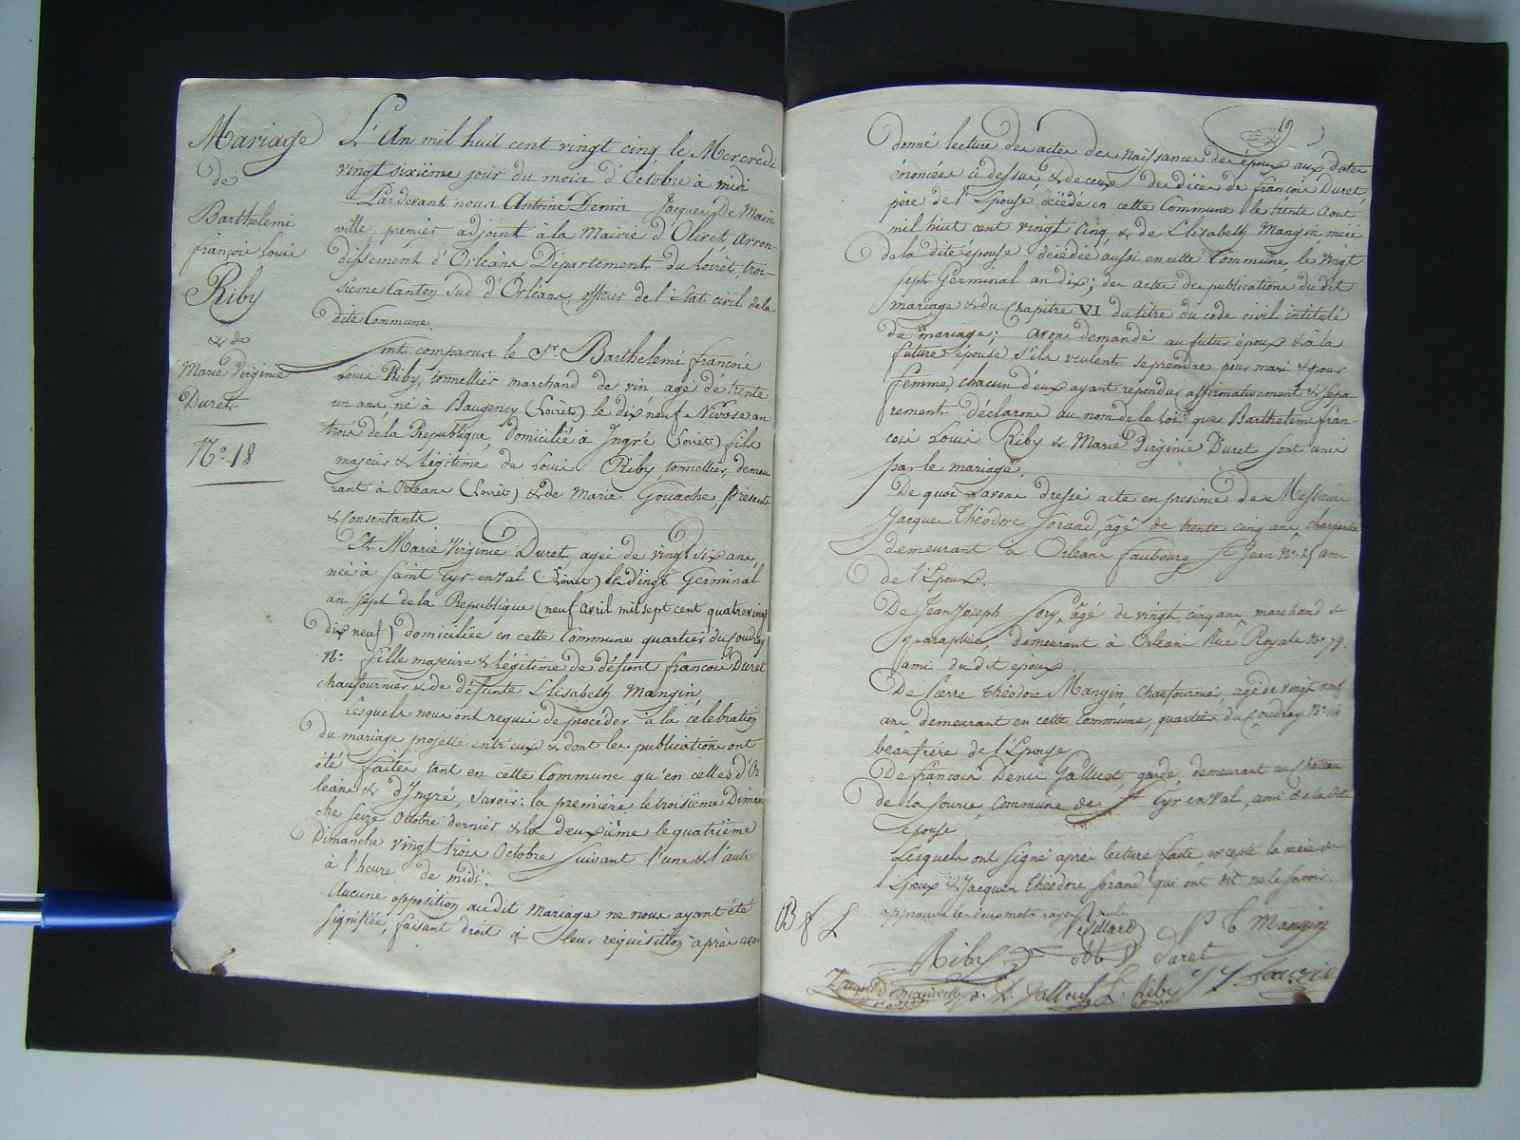 Mariage
de
Barthelemi
françois Louis
Riby
& de
Marie Virginie
Duret
N.° 18
L'An mil huit cent vingt cinq le Mercredi
vingt sixième jour du mois d'Octobre à midi
Pardevant nous Antoine Jacques De Main
ville premier adjoint à la Mairie d'Olivet, arron-
dissement d'Orléans Département du Loiret, troi-
sième Canton sud d'Orléans, officier de l'état civil de la
dite Commune.
Sont comparus le Sr. Barthelemi françois
Louis Riby, tonnellier marchand de vin agé de trente
un ans, né à Baugency (Loiret) le dix neuf Nivose an
trois de la République, domicilié à Ingré (Loiret) fils
majeur & légitime de Louis Riby, tonnellier, demeu
rant à Orléans (Loiret) & de Marie Gouache, présents
& consentants
Et Marie Virginie Duret, agée de vingt six ans,
née à Saint Cyr en Val (Loiret) le vingt Germinal
an sept de la République (neuf avril mil sept cent quatre vingt
dix neuf) domiciliée en cette Commune quartier du Coudray
N.° fille majeure & légitime de défunt françois Duret
chaufournier & de défunte Elisabeth Mangin,
Lesquels nous ont requis de procéder à la célébration
du mariage projetté entr'eux & dont les publications ont
été faites tant en cette Commune qu'en celles d'Or
léans & d'Ingré, savoir: la première le troisième Diman
che seize Octobre dernier & la deuxième le quatrième
Dimanche vingt trois Octobre suivant l'une & l'autre
à l'heure de midi.
Aucune opposition au dit mariage ne nous ayant été
signifiée, faisant droit à leur réquisition après avoir
19
donné lecture des actes de naissance des époux aux dates
énoncées ci dessus & de ceux de décès de françois Duret
père de l'Epouse décédé en cette Commune le trente Aout
mil huit cent vingt cinq & de Elisabeth Mangin mère
de la dite épouse décédée aussi en cette Commune le vingt
sept Germinal an dix; des actes de publications du dit
mariage & du Chapitre VI du titre du code civil intitulé
du mariage; avons demandé au futur époux & à la
future épouse s'ils veulent se prendre pour mari & pour
femme, chacun d'eux ayant répondu affirmativement & sépa
rement déclarons au nom de la loi que Barthelemi fran-
çois Louis Riby & Marie Virginie Duret sont unis
par le mariage.
De quoi avons dressé acte en présence de Messieurs
Jacques Théodore Forand agé de trente cinq ans charpentier
demeurant à Orléans faubourg St Jean N.° 25 ami
de l'Epoux.
De Jean Joseph Sory, agé de vingt cinq ans, marchand de
parapluies, demeurant à Orléans Rue Royale N.° 79.
ami du dit époux
De Pierre Théodore Mangin, chaufournier, agé de vingt neuf
ans demeurant en cette Commune, quartier du Coudray N.°
beaufrère de l'Epouse
De françois Denis Galliot, garde, demeurant au chateau
de la Source Commune de St Cyr en Val, ami de la dite
épouse
Lesquels ont signé après lecture faite, excepté la mère de
l'Epoux & Jacques Théodore Forand qui ont dit ne le savoir.
approuvé les deux mots rayés nuls
B f L
P T Mangin
Riby
Duret
L. Riby